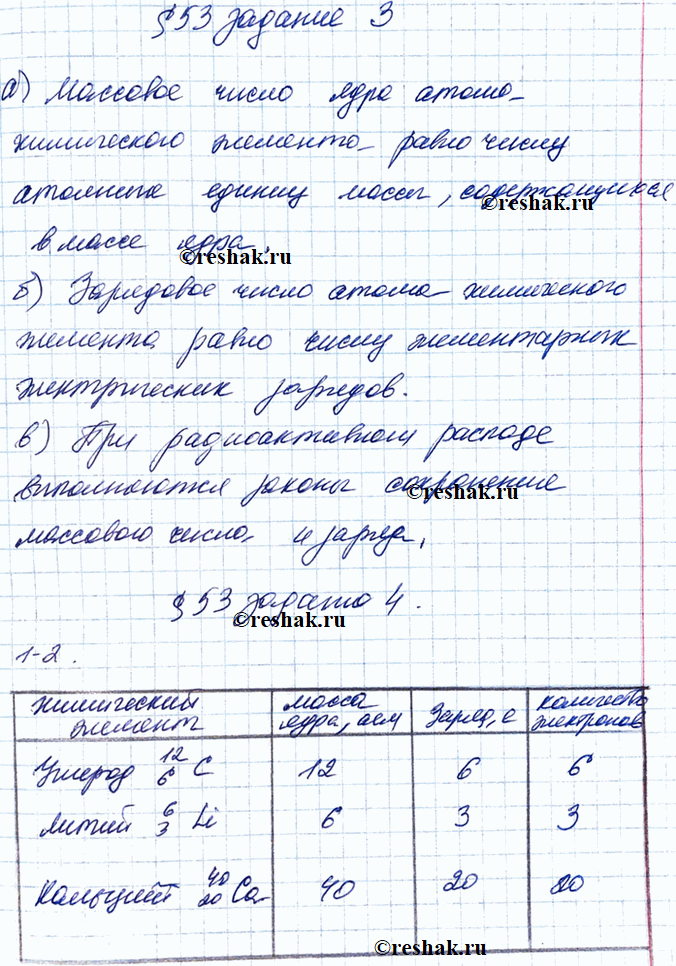 §53 задание 3
а) Массовое число ядра атома
химического элемента равно числу
атомных единиц массы, содержащихся
©reshak.ru
в массе ядра.
©reshak.ru
б) Зарядовое число атома химического
элемента равно числу элементарных
электрических зарядов.
в) При радиоактивном распаде
выполняются законы сохранение
©reshak.ru
массового число и заряд.
§53 задание 4.
©reshak.ru
1-2.
Химический элемент | масса ядра, аем | Заряд, e | количество электронов
Углерод 12 6 C | 12 | 6 | 6
Литий 6 3 Li | 6 | 3 | 3
Кальций 40 20 Ca | 40 | 20 | 20
©reshak.ru